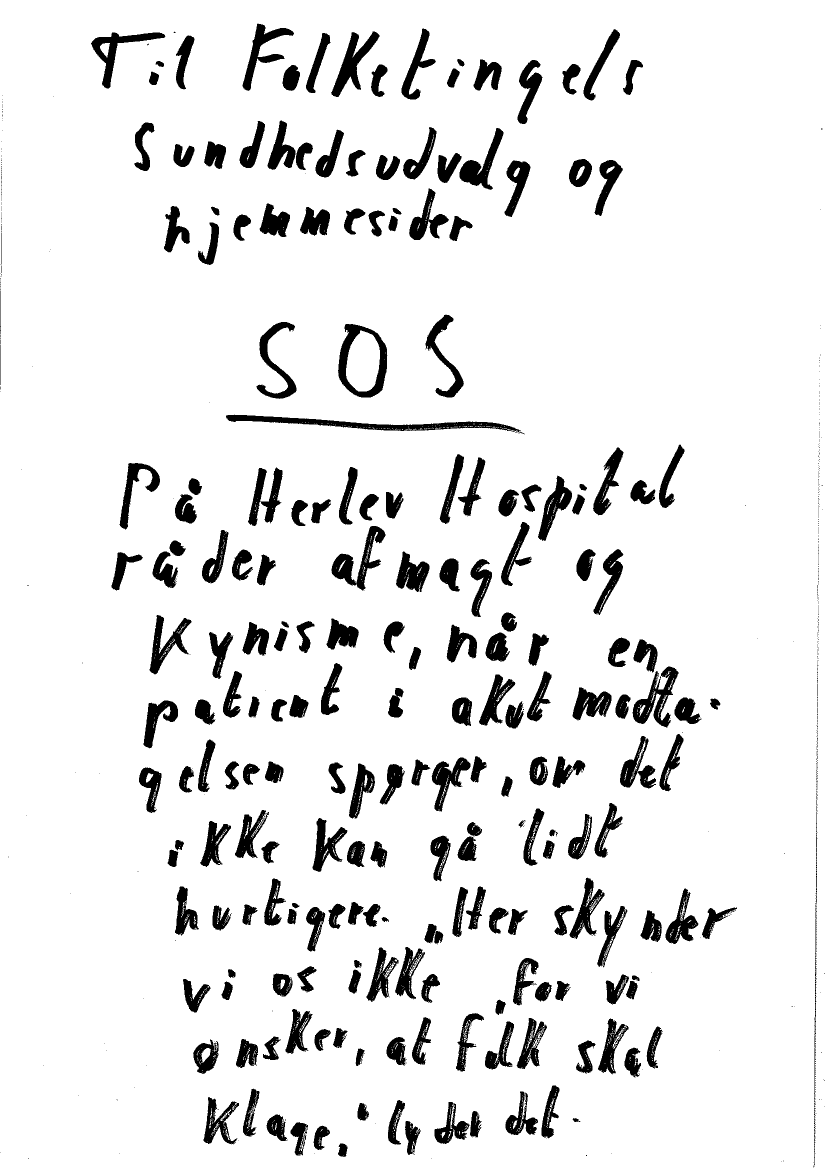 Til Folketingets
Sundhedsudvalg og
hjemmesider
SOS
På Herlev Hospital
råder afmagt og
Kynisme, når en
patient i akut modta-
gelsen spørger, om det
ikke kan gå lidt
hurtigere. „Her skynder
vi os ikke, for vi
ønsker, at folk skal
klage," lyder det.